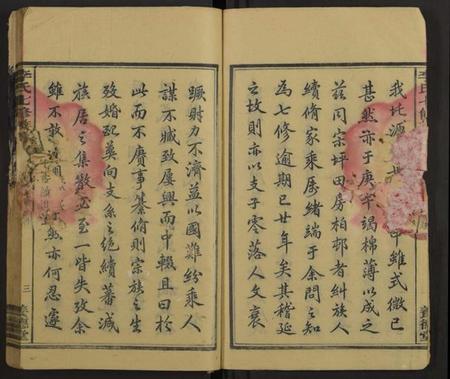 我圯源
雖式微已
甚然亦于庚午竭棉薄以成之
茲同宗坪田房柏邨者糾族人
續脩家乘孱緒端于余問之知
為七修逾期已廿年矣其稽延
之故則亦以支子零落人文衰
蹶財力不濟益以國難紛乘人
謀不臧致屢興而中輟且曰於
此而不賡事纂脩則宗族之生
歿婚配奠向支系之絕續蕃減
族居之集散亞至一皆失攷余
雖不敢
然亦何忍遽
李氏七修
三